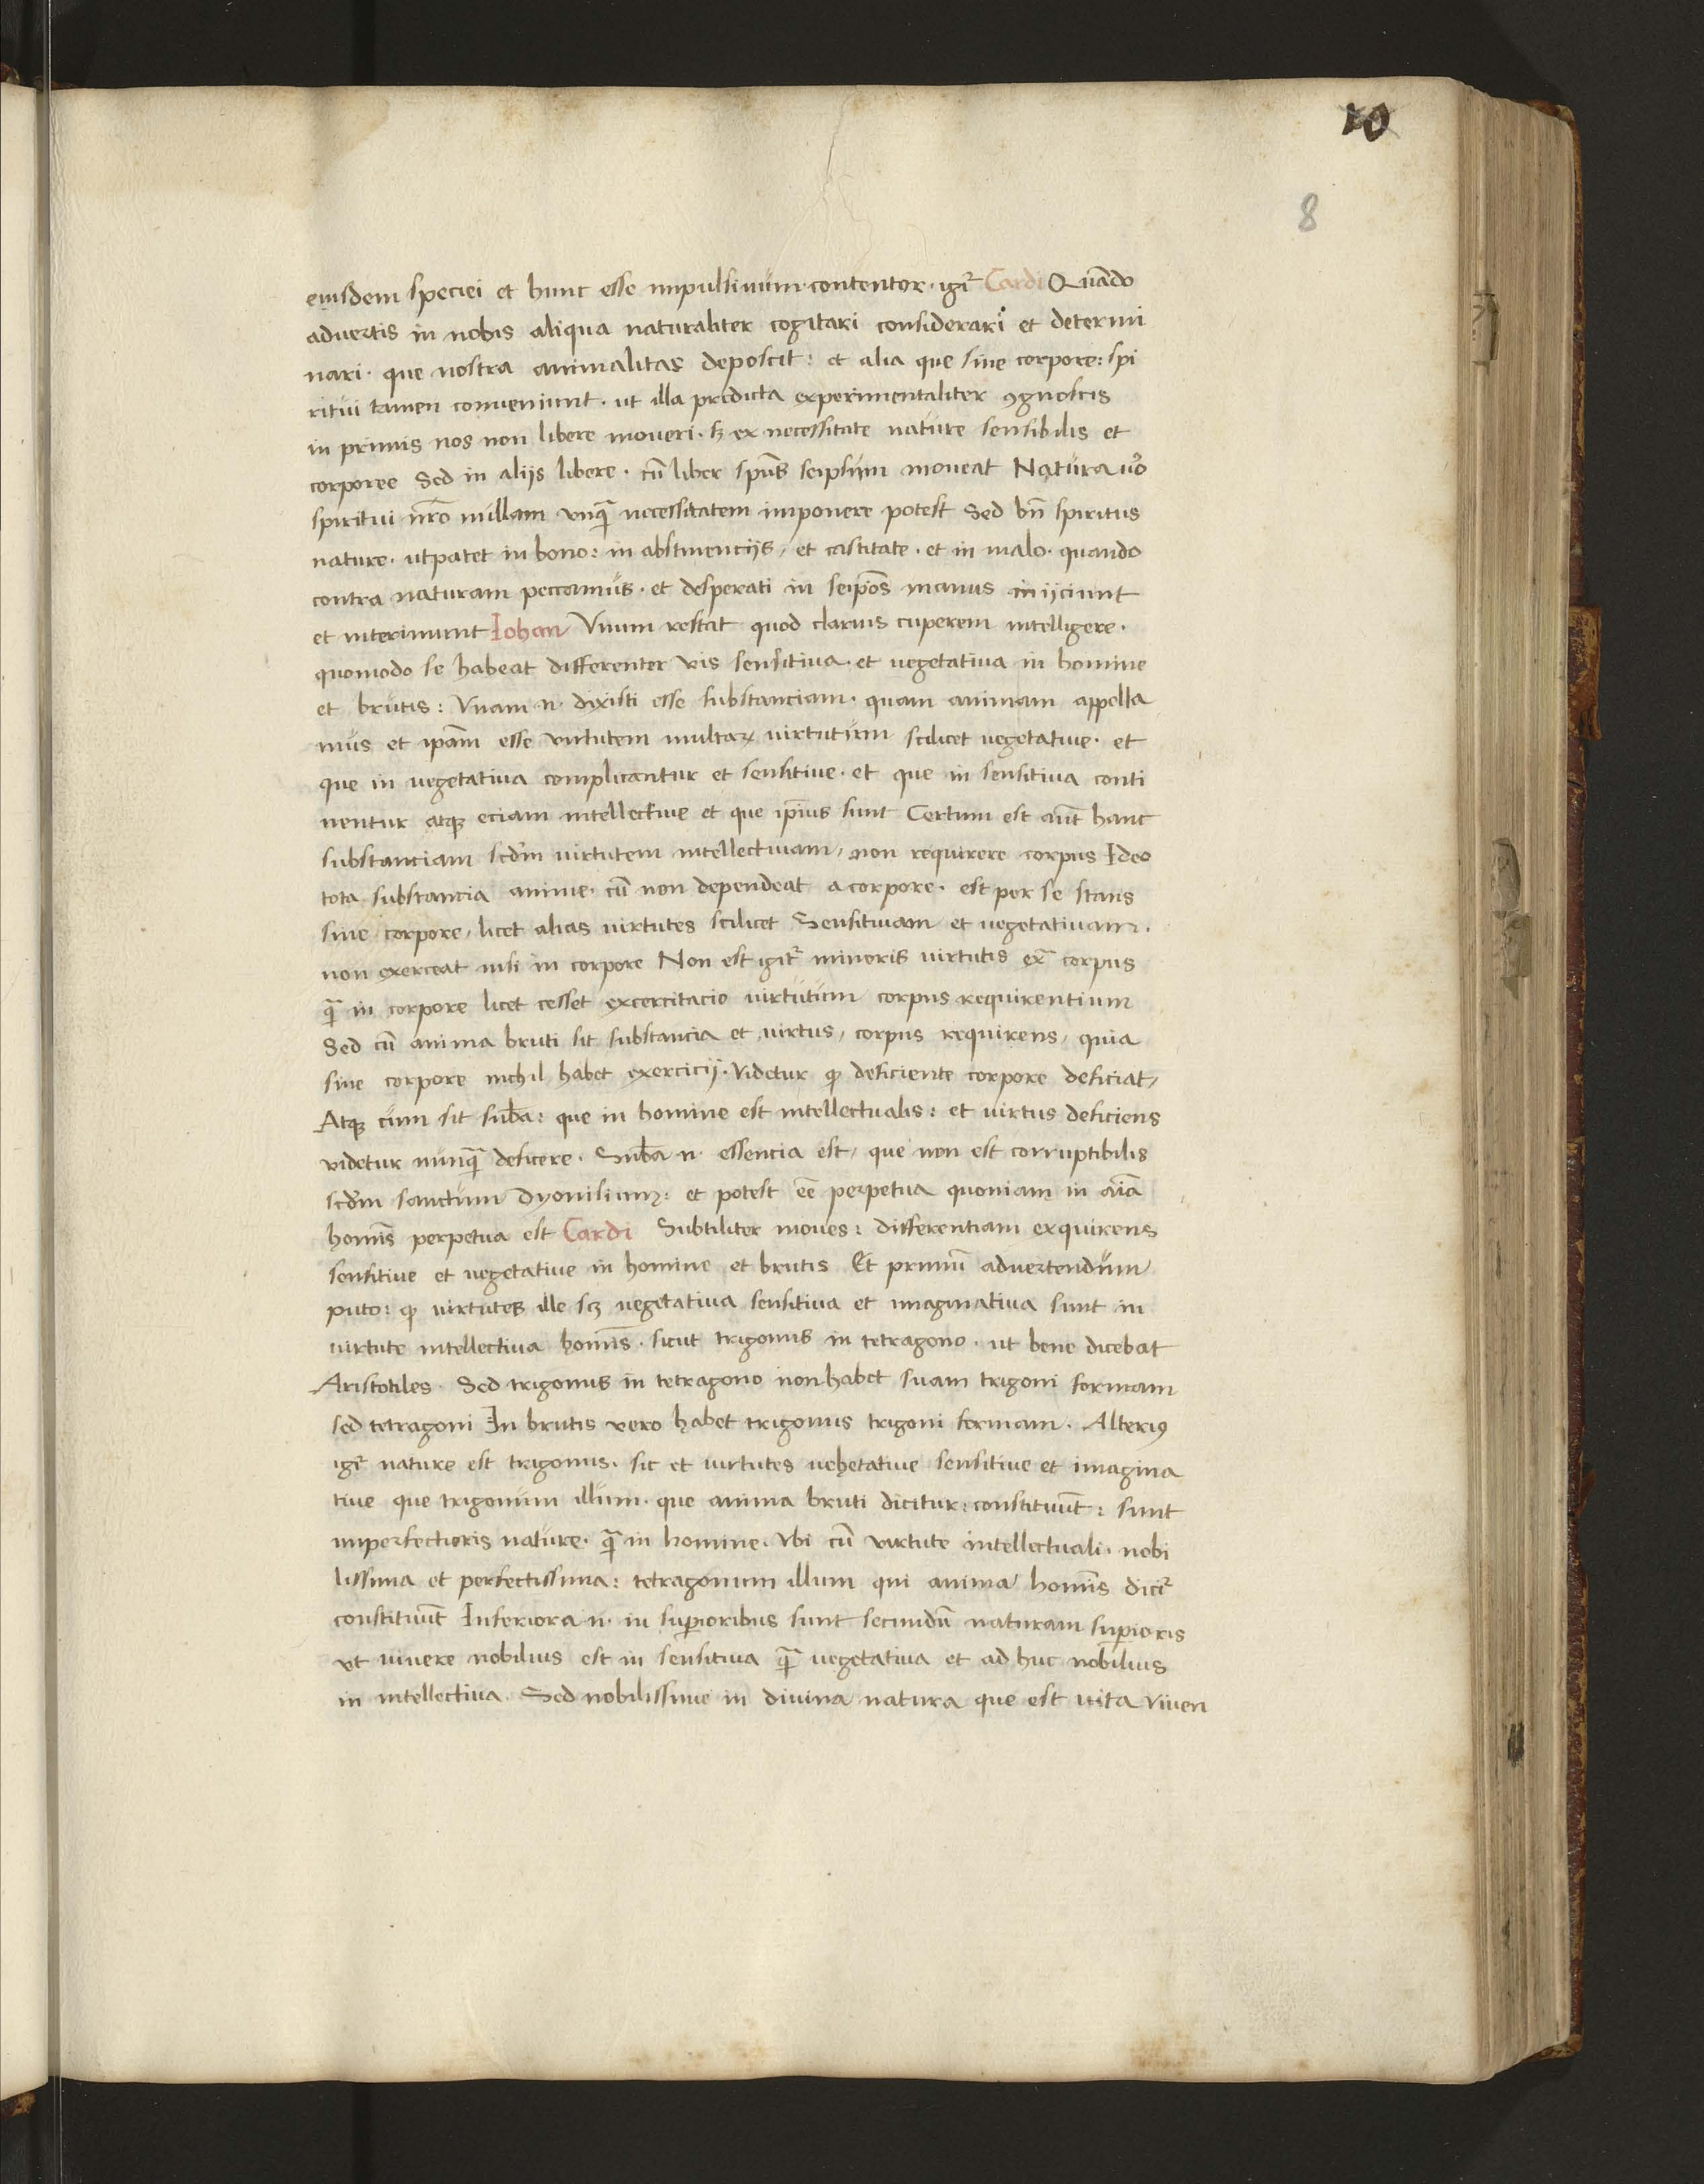 10
8
eiusdem speciei et hunc esse impulsiuum·contentor·igit᷑ Cardi Quãdo
aduertis in nobis aliqua naturaliter cogitari considerari et determi
nari· que nostra animalitas deposcit: et alia que sine corpore: spi
ritui tamen conueniunt· ut illa predicta experimentaliter ꝯgnoscis
in primis nos non libere moueri· sꝫ ex necessitate nature sensibilis et
corporee Sed in alijs libere· cũ liber spũs seipsum moueat Natura uͦo
spiritui nr̃o nullam vnq̃ necessitatem imponere potest Sed bñ spiritus
nature· utpatet in bono: in abstinencijs, et castitate· et in malo· quando
contra naturam peccamus· et desperati in seip̃os manus inijciunt
et interimunt Iohan Vnum restat quod clarius cuperem intelligere·
quomodo se habeat differenter vis sensitiua· et vegetatiua in homine
et brutis: Vnam n· dixisti esse substanciam· quam animam appella
mus et ip̃am esse virtutem multaꝝ virtutum scilicet vegetatiue· et
que in vegetatiua complicantur et sensitiue· et que in sensitiua conti
nentur atqꝫ eciam intellectiue et que ip̃ius sunt Certum est aũt hanc
substanciam scd̃m virtutem intellectiuam, non requirere corpus Ideo
tota substancia anime· cũ non dependeat a corpore· est per se stans
sine corpore, licet alias virtutes scilicet Sensitiuam et vegetatiuam·
non exerceat nisi in corpore Non est igit᷑ minoris virtutis ex̃ corpus
q̃ in corpore licet cesset excercitacio virtutum corpus requirentium
Sed cũ anima bruti sit substancia et virtus, corpus requirens, quia
sine corpore nichil habet exercicij· Videtur ꝙ deficiente corpore deficiat,
Atqꝫ cum sit sub̃a: que in homine est intellectualis: et virtus deficiens
videtur nunq̃ deficere· Sub̃a n· essencia est, que non est corruptibilis
scd̃m sanctum Dyonisium: et potest eẽ perpetua quoniam in aĩa
homĩs perpetua est Cardi Subtiliter moues: differentiam exquirens
sensitiue et vegetatiue in homine et brutis Et primũ aduertendum
puto: ꝙ virtutes ille scꝫ vegetatiua sensitiua et imaginatiua sunt in
virtute intellectiua homĩs· sicut trigonus in tetragono· ut bene dicebat
Aristotiles· Sed trigonus in tetragono non habet suam trigoni formam
sed tetragoni In brutis vero habet trigonus trigoni formam· Alteriꝰ
igit᷑ nature est trigonus· sic et virtutes vehetatiue sensitiue et imagina
tiue que trigonum illum· que anima bruti dicitur: constituũt: sunt
imperfectioris nature· q̃ in homine· Vbi cũ virtute intellectuali· nobi
lissima et perfectissima: tetragonum illum qui anima homĩs dicit᷑
constituũt Inferiora n· in suꝑioribus sunt secundũ naturam suꝑioris
vt viuere nobilius est in sensitiua q̃ vegetatiua et ad huc nobilius
in intellectiua· Sed nobilissime in diuina natura que est vita viuen